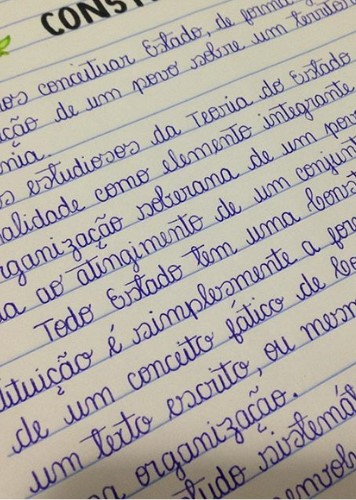 CONST
os conceituar Estado, de forma
ção de um povo sobre um territór
nia.
s estudiosos da Teoria do Estado
alidade como elemento integrante
rganização soberana de um pov
a ao atingimento de um conjunt
Todo Estado tem uma Const
tituição é simplesmente a for
de um conceito fático de Co
um texto escrito, ou mesm
a organização.
tido sistemá
envol